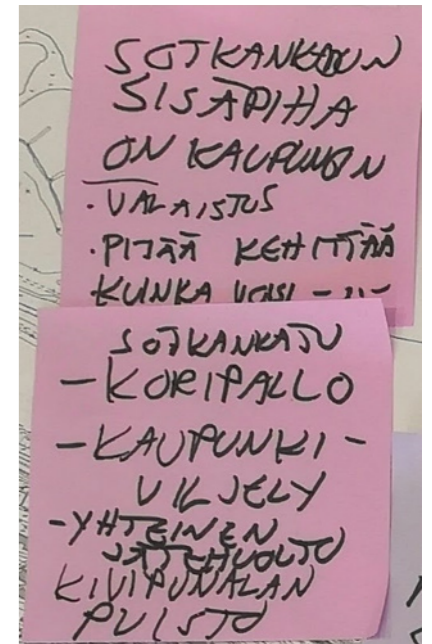 SOTKANKADUN
SISÄPIHA
ON KAUPUNGIN
· VALAISTUS
· PITÄÄ KEHITTÄÄ
KUINKA VOISI - 11 -
SOTKANKATU
- KORIPALLO
- KAUPUNKI -
VILJELY
- YHTEINEN
JÄTEHUOLTO
KIVIPUNALAN
PUISTO